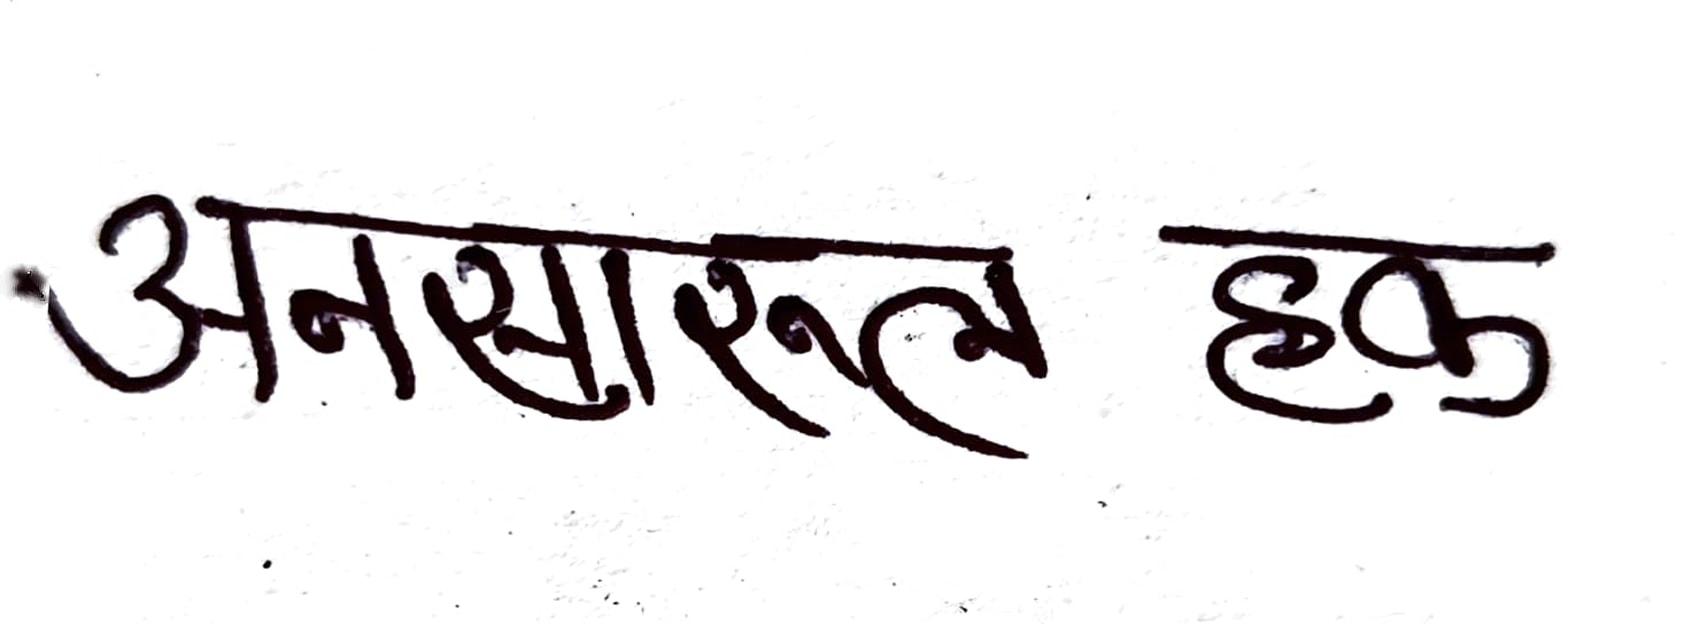 अनसारूल हक